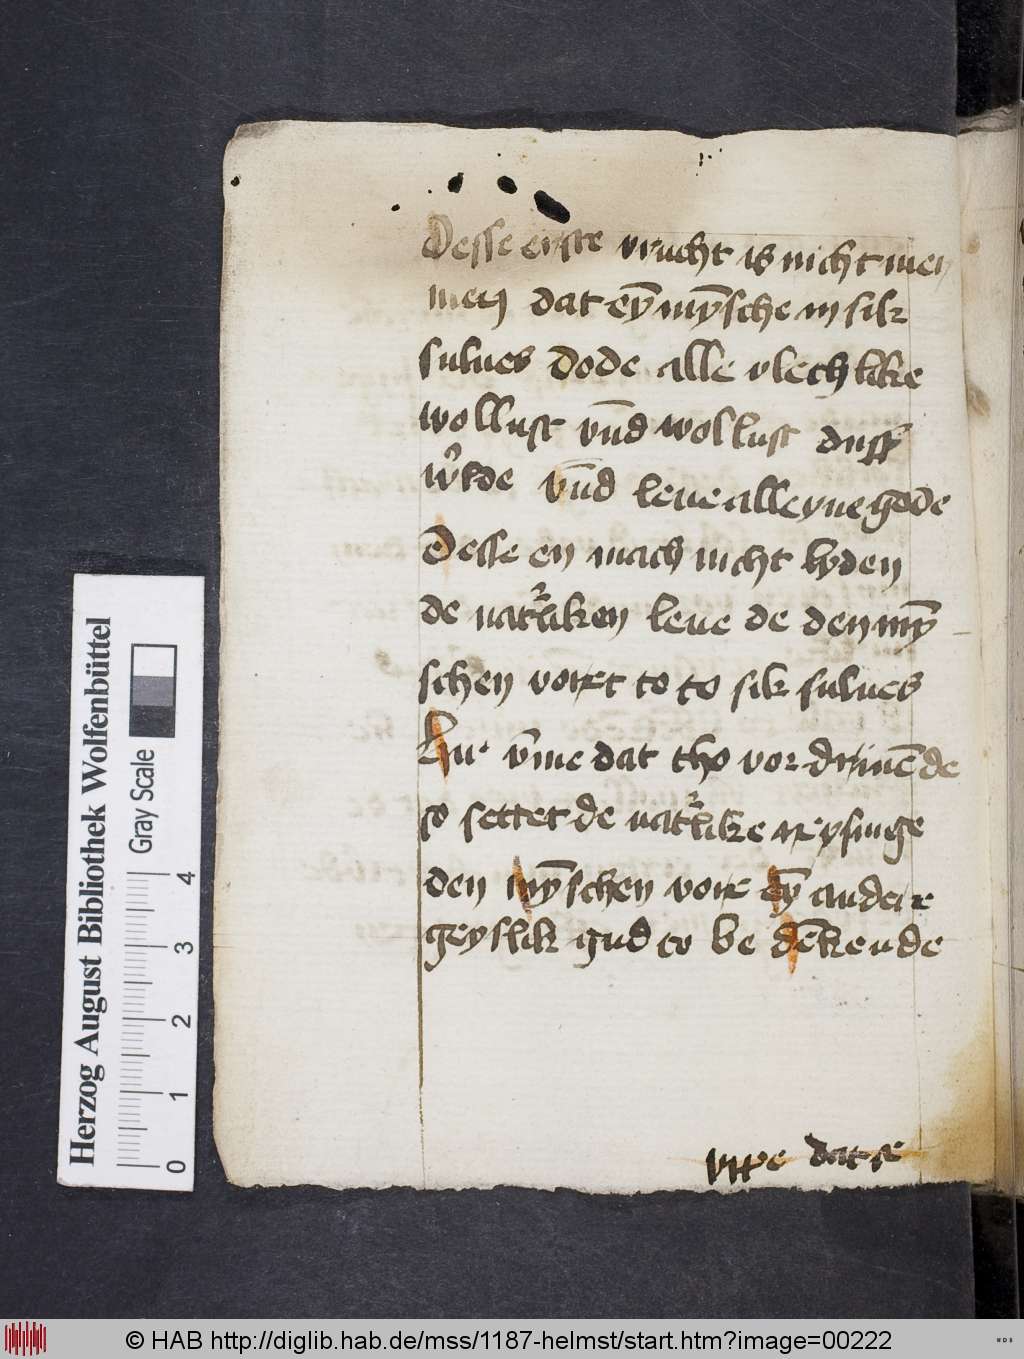 Desse erste vrucht is nicht wen
wen dat eȳ mȳsche in sik
sulues dode alle vlechlike
wollust vn̄d wollust dusß
wͤlde vn̄d leue alleyne gode
Desse en mach nicht lyden
de natrliken leue de den mȳ
schen voret to to sik sulues
Hir v̄me dat tho vordriuēde
so settet de natrlike reysinge
den mȳschen vore eȳ andere
geyslik gud to be dēkende
vppe dat se
Herzog August Bibliothek Wolfenbüttel
Gray Scale
0 1 2 3 4
© HAB http://diglib.hab.de/mss/1187-helmst/start.htm?image=00222
HAB